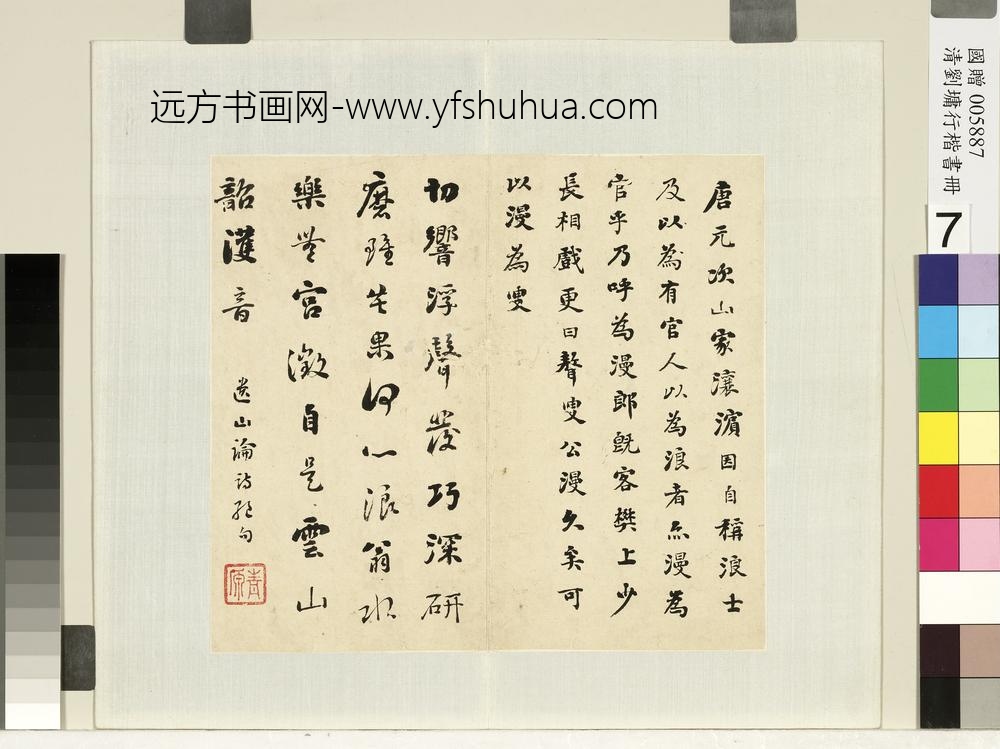 远方书画网-www.yfshuhua.com
國贈 005887
清劉墉行楷書冊
7
唐元次山家瀼濱因自稱浪士
及以為有官人以為浪者亦漫為
官乎乃呼為漫郎既客樊上少
長相戲更曰聱叟公漫久矣可
以漫為叟
切響浮聲發巧深研
摩雖苦果何心浪翁水
樂無宮徵自是雲山
韶濩音
遺山論詩絕句